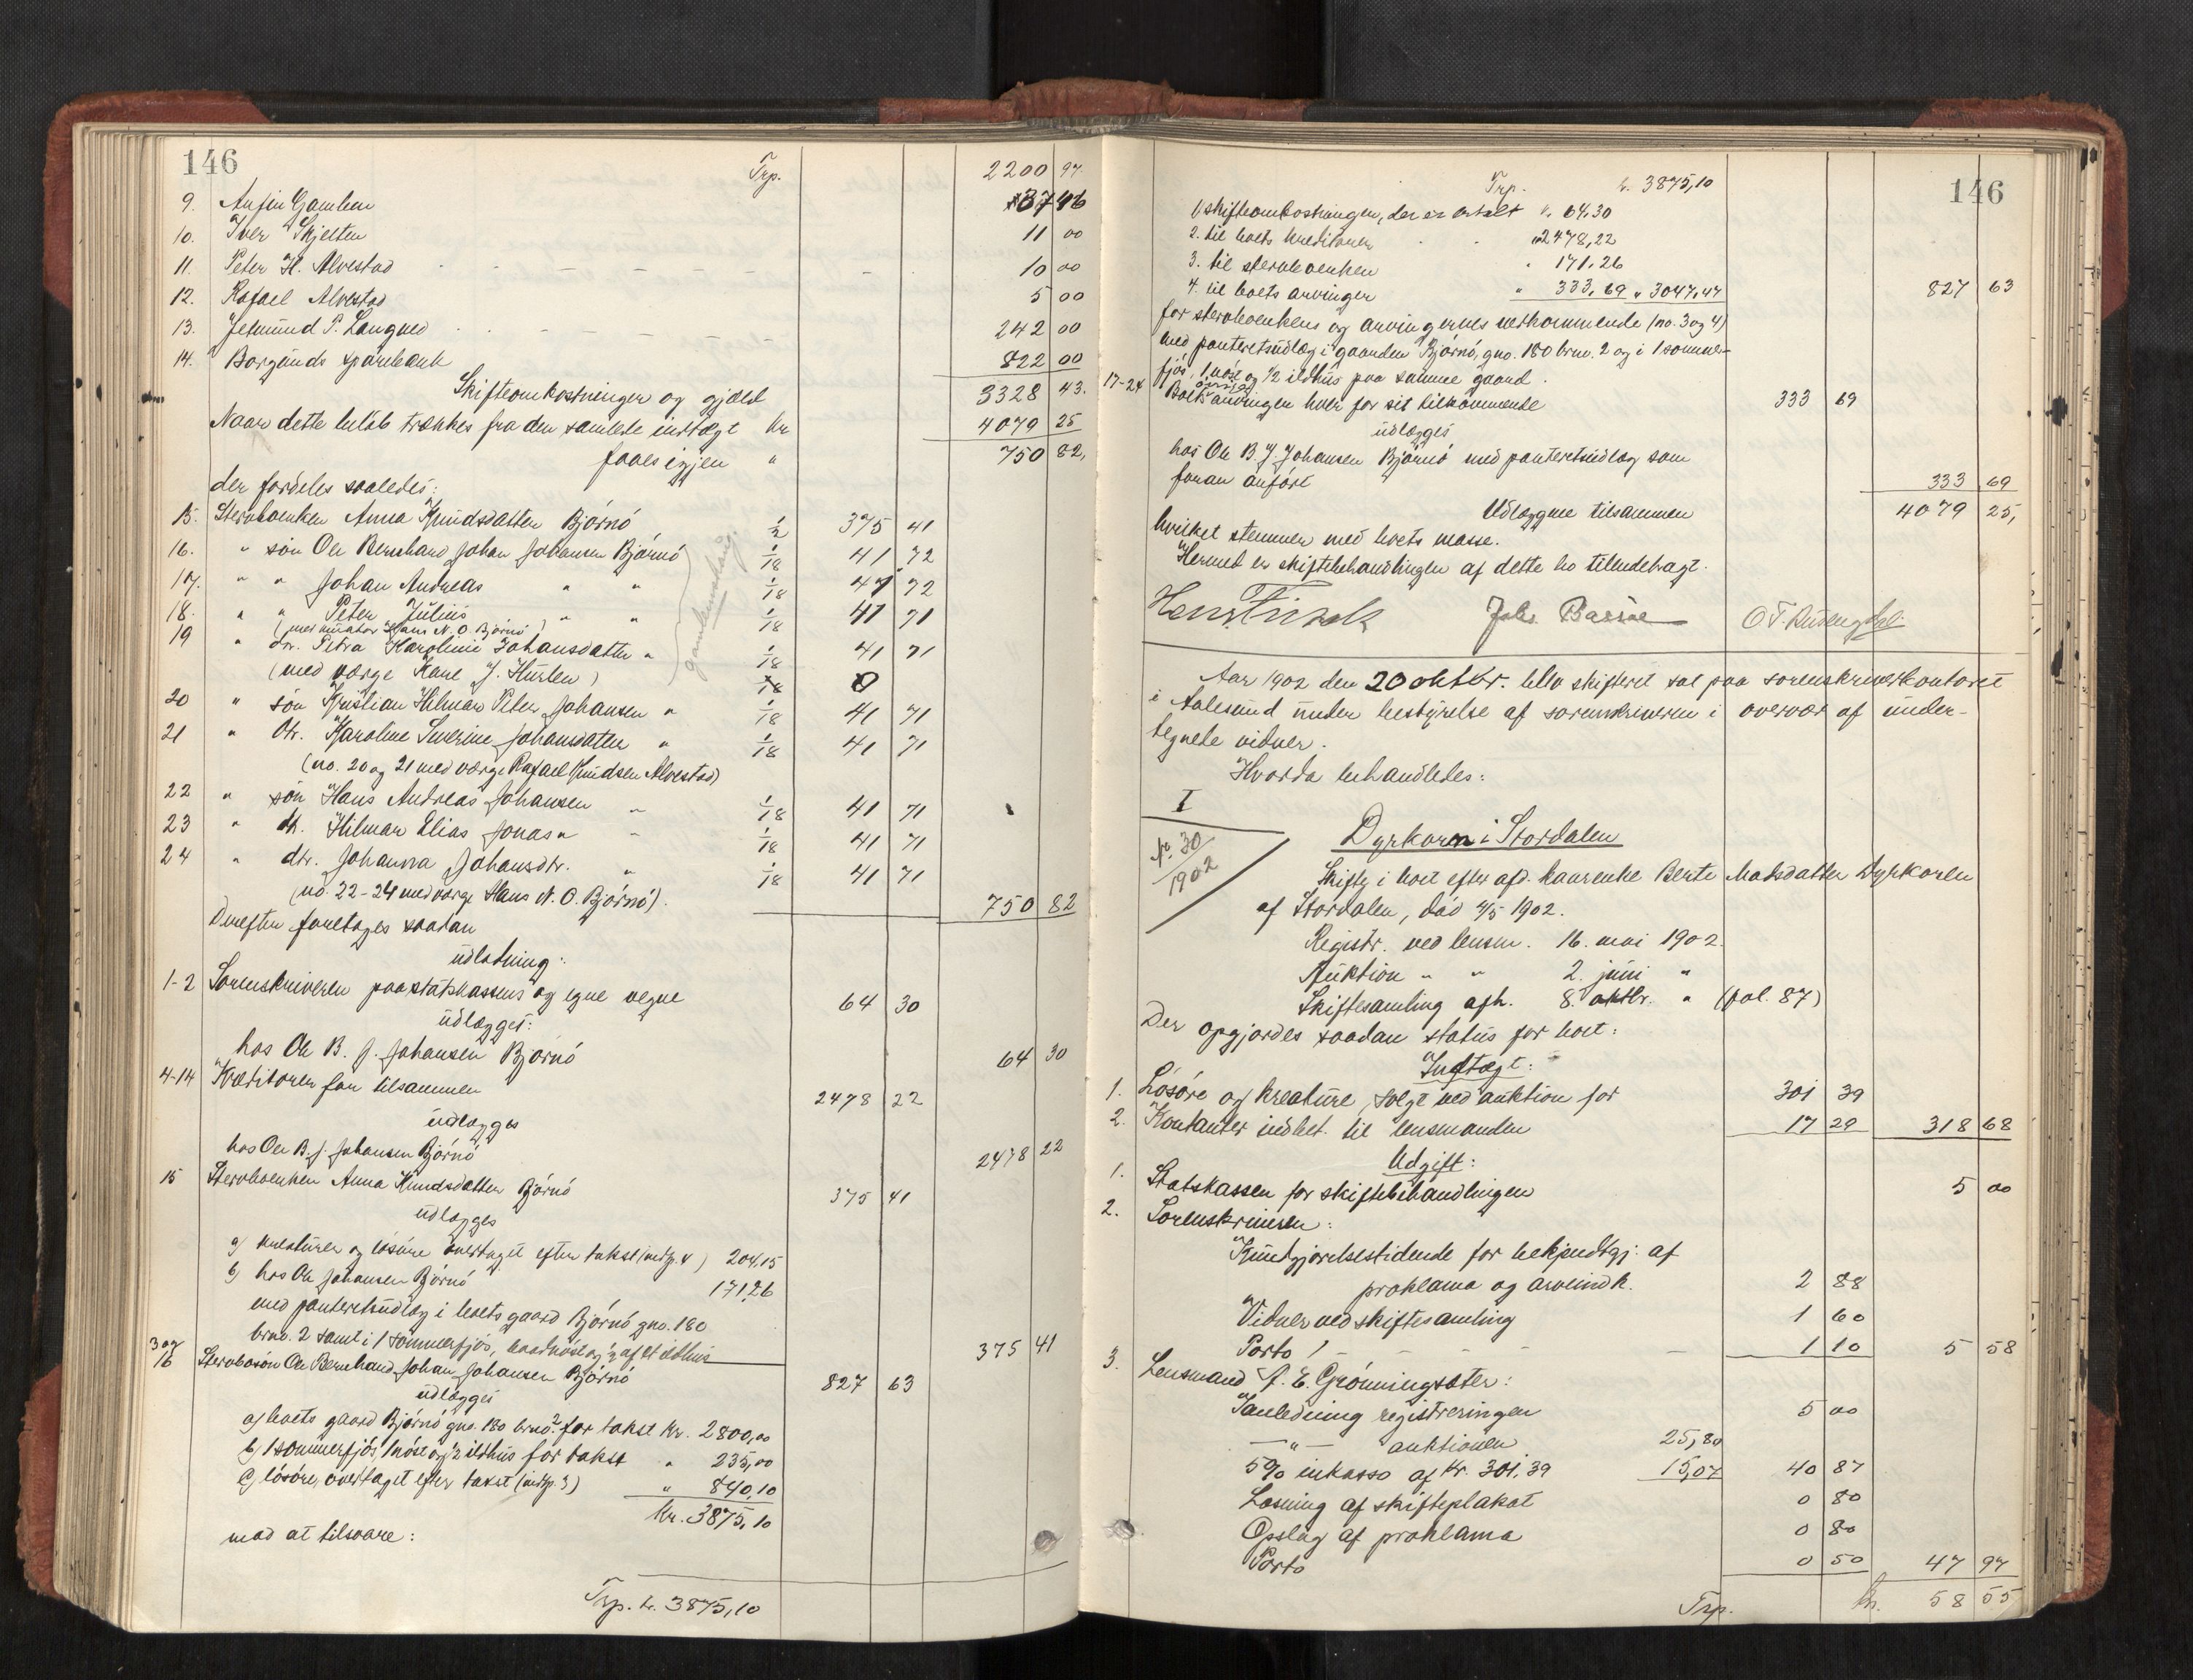 146
Trp. 2200 97
9. Gamlem 37 46
10. Iver Skjelten 11 00
11. Peter H. Alvestad 10 00
12. Rafael Alvestad 5 00
13. Jetmund P. Langved 242 00
14. Borgunds sparebank 822 00
Skifteomkostninger og gjæld 3328 43.
Naar dette beløb trækkes fra den samlede indtægt kr 4079 25
faaes igjen " 750 82,
der fordeles saaledes:
15. Stervboenken Anna Knudsdatter Bjørnø 1/2 375 41
16. " søn Ole Bernhard Johan Johansen Bjørnø 1/18 41 72
17. " " Johan Andreas " " 1/18 41 72
18. " " Peter Julius " " 1/18 41 71
(med kurator Hans N. O. Bjørnø)
19 " dtr. Petra Karoline Johansdatter " 1/18 41 71
(med værge Kane J. Hurlen) 1/18 0
20 " søn Kristian Hilmar Peter Johansen " 1/18 41 71
21 " dtr. Karoline Severine Johansdatter " 1/18 41 71
(no. 20 og 21 med værge Rafael Knudsen Alvestad)
22 " søn Hans Andreas Johansen " 1/18 41 71
23 " Hilmar Elias Jonas " " 1/18 41 71
24 " dtr. Johanna Johansdtr. " 1/18 41 71
(no. 22-24 med værge Hans N. O. Bjørnø). 750 82
Derefter foretages saadan
udlodning:
1-2 Sorenskriveren paa statskassens og egne vegne 64 30
udlægges:
hos Ole B. J. Johansen Bjørnø 64 30
4-14 Kreditorer faar tilsammen 2478 22
udlægges
hos Ole B. J. Johansen Bjørnø 2478 22
15 Stervboenken Anna Knudsdatter Bjørnø 375 41
udlægges
a) kreaturer og løsøre overtaget efter takst (indtp. 4) 204,15
b) hos Ole Johansen Bjørnø 171,26
med panteretsudlæg i boets gaard Bjørnø gno. 180
brno. 2 samt i 1 sommerfjøs, baadnøst og ½ af et ildhus 375 41
3 og 16 Stervbosøn Ole Bernhard Johan Johansen Bjørnø 827 63
udlægges
a) boets gaard Bjørnø gno. 180 brno. 2 for takst kr. 2800,00
b) 1 sommerfjøs, 1 nøst og ½ ildhus for takst " 235,00
c) løsøre, overtaget efter takst (indtp. 3) " 840,10
kr. 3875,10
mod at tilsvare:
Trp. kr. 3875,10
146
Trp. kr. 3875,10
1) skifteomkostninger, der er betalt kr. 64,30
2. til boets kreditorer " 2478,22
3. til stervboenken " 171,26
4. til boets arvinger " 333,69 " 3047,47 827 63
for stervboenkens og arvingernes vedkommende (no. 3 og 4)
med panteretsudlæg i gaarden Bjørnø, gno. 180 brno. 2 og i 1 sommer-
fjøs, 1 nøst og ½ ildhus paa samme gaard.
17-24 Boets øvrige arvinger hver for sit tilkommende 333 69
udlægges
hos Ole B. J. Johansen Bjørnø med panteretsudlæg som
foran anført 333 69
Udlæggene tilsammen 4079 25,
hvilket stemmer med boets masse.
Hermed er skiftebehandlingen af dette bo tilendebragt.
Aar 1902 den 20 oktbr. blev skifteret sat paa sorenskriverkontoret
i Aalesund under bestyrelse af sorenskriveren i overvær af under-
tegnede vidner.
Hvorda behandledes:
I
Nr. 30
1902
Dyrkorn i Stordalen
Skifte i boet efter afd. kaarenke Berte Matsdatter Dyrkoren
af Stordalen, død 4/5 1902.
Registr. ved lensm. 16. mai 1902.
Auktion " " 2. juni "
Skiftesamling afh. 8. oktbr. " (fol. 87)
Der opgjordes saadan status for boet:
Indtægt:
1. Løsøre og kreature, solgt ved auktion for 301 39
2. Kontanter indbet. til lensmanden 17 29 318 68
Udgift:
1. Statskassen for skiftebehandlingen 5 00
2. Sorenskriveren:
Kundgjørelsestidende for bekjendtgj. af
proklama og arveindk. 2 88
Vidner ved skiftesamling 1 60
Porto 1 10 5 58
3. Lensmand A. E. Grønningsæter:
I anledning registreringen 5 00
— " — auktionen 25,80
5% inkasso af kr. 301,39 15,07 40 87
Læsning af skifteplakat 0 80
Opslag af proklama 0 80
Porto 0 50 47 97
Trp. kr. 58 55